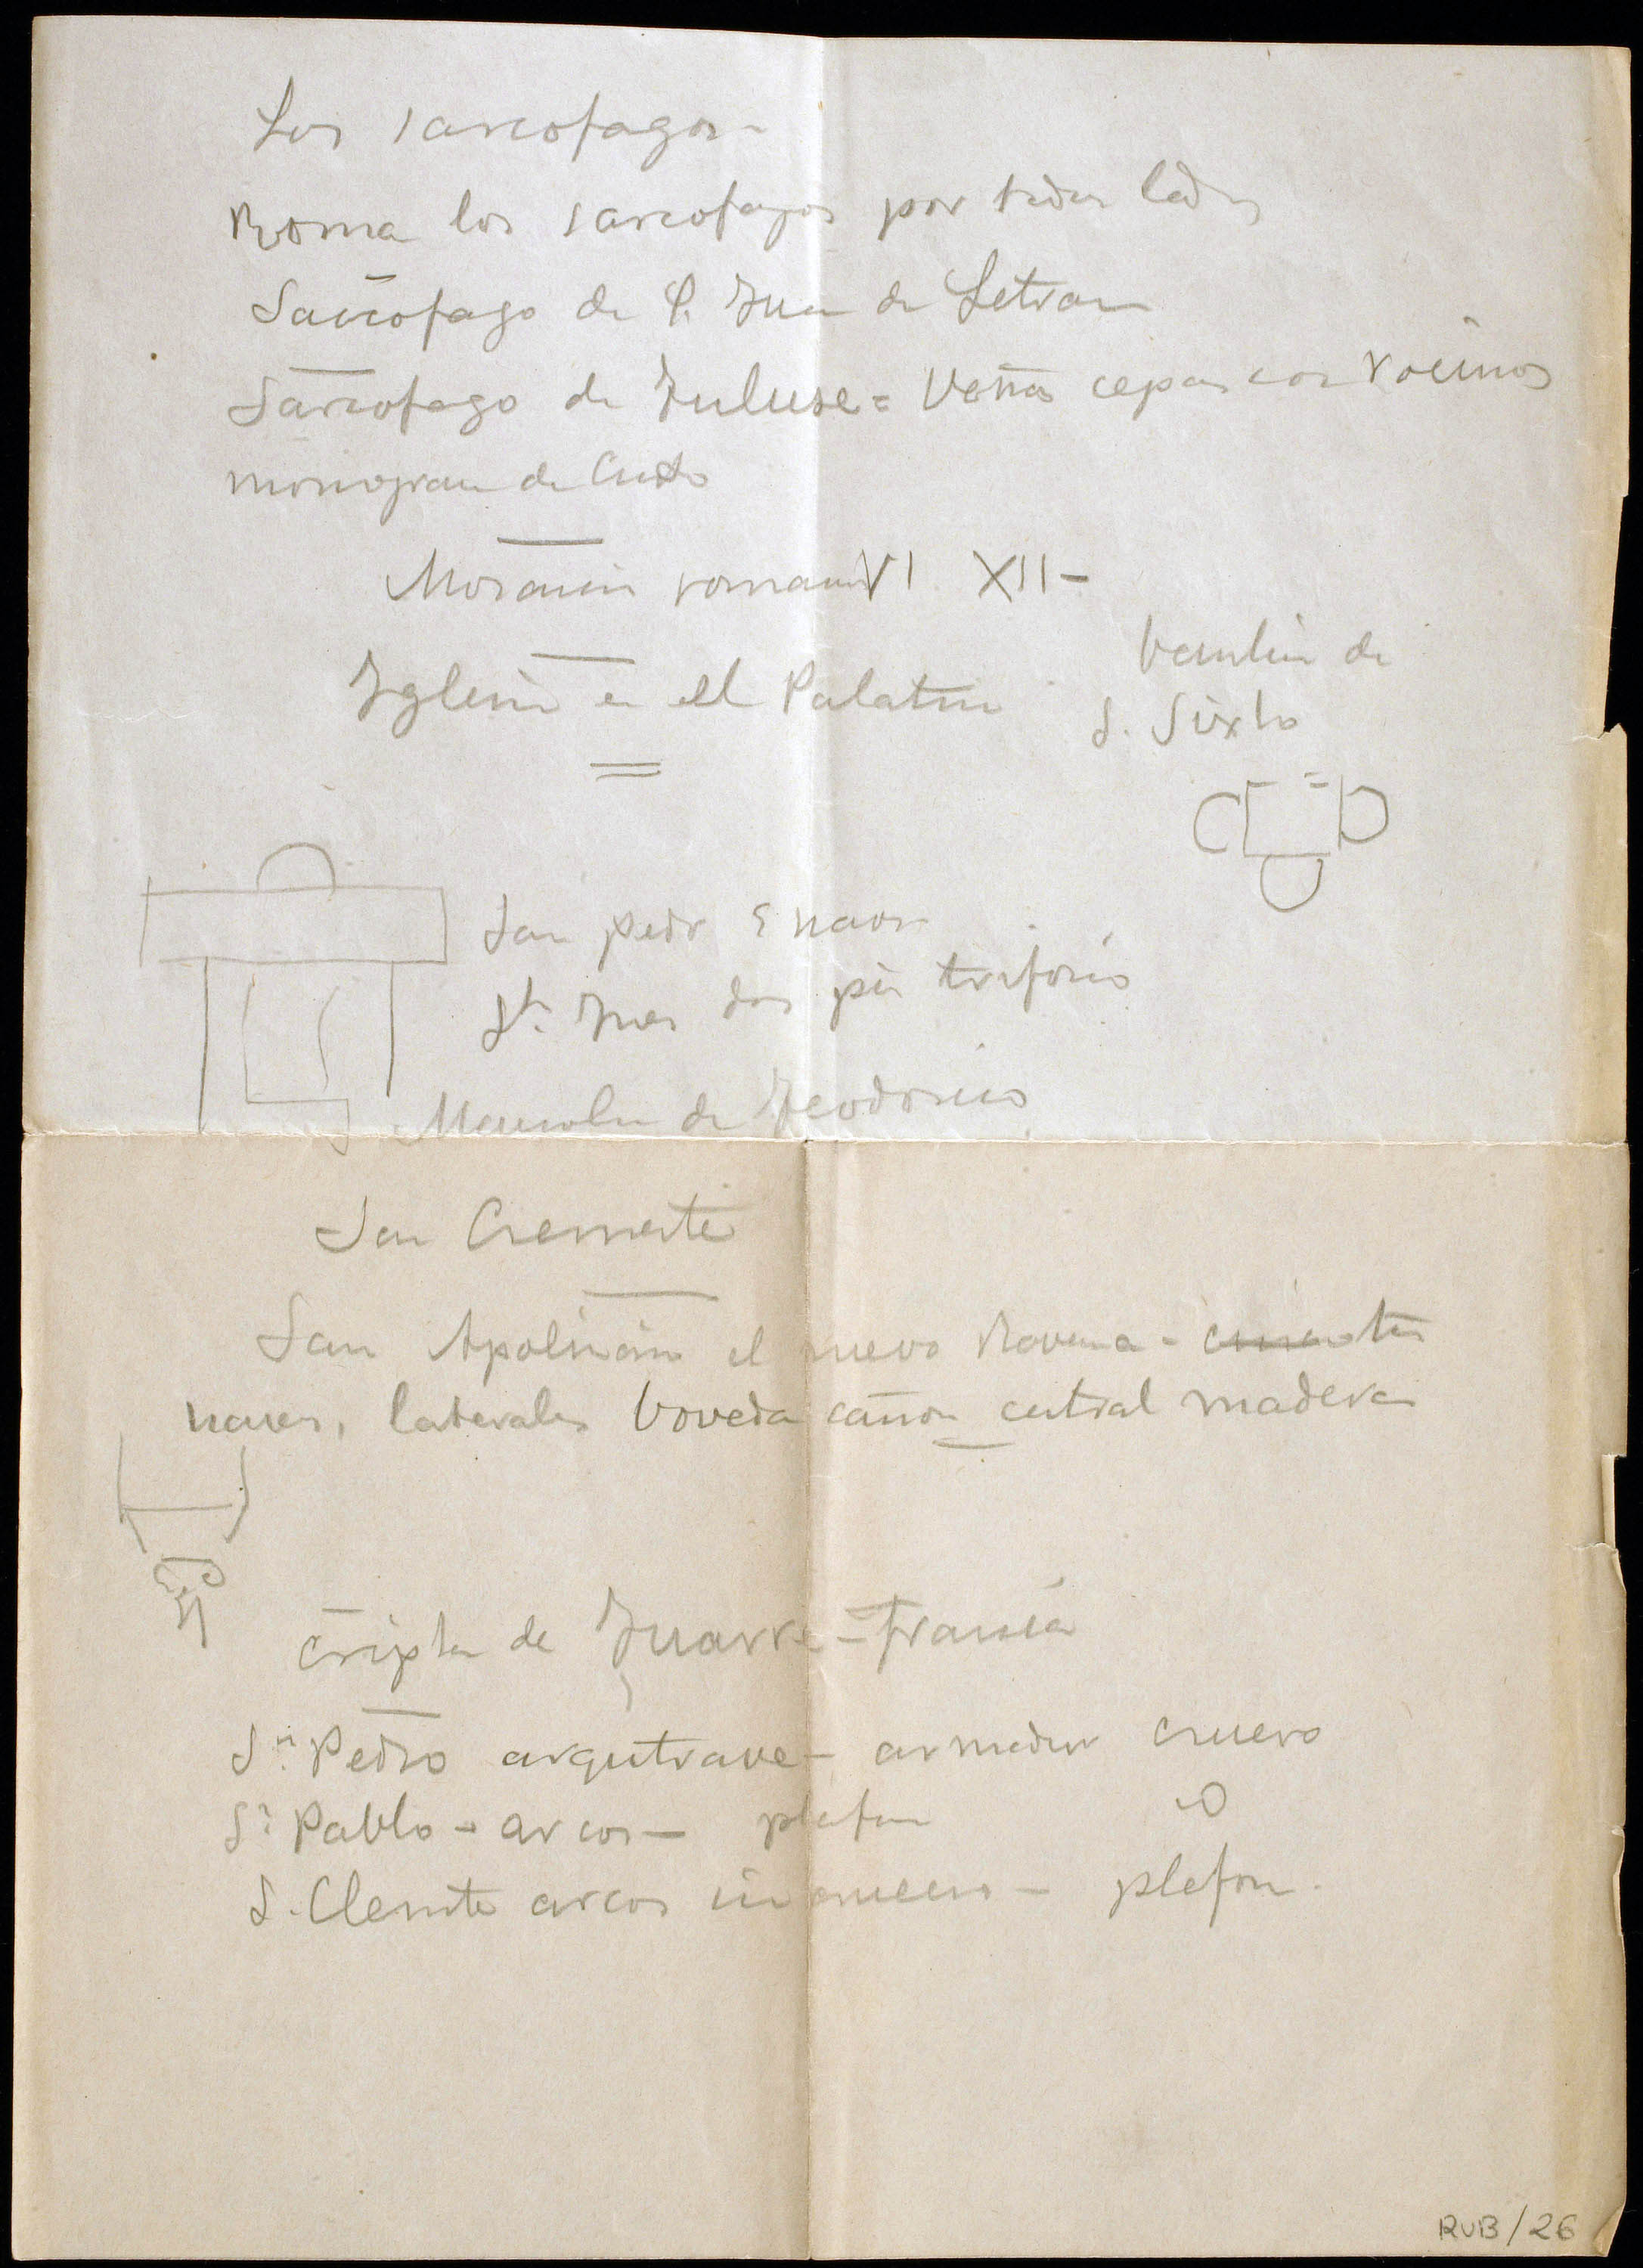 Los sarcofagos -
Roma los sarcofagos por todos lados
Sarcofago de S. Juan de Letran
Sarcofago de Tuluse = Viñas cepas con racimos
monogram de Cristo
Mosaicos romanos VI XII -
Iglesia en el Palatino
de
S. Sixto
San Pedro 5 naves
Sta. Ines dos pisos triforio
Mausoleo de Teodorico
San Cremente
San Apolinario el nuevo Ravena -
naves, laterales boveda cañon central madera
Cripta de Juarre - Francia
Sn. Pedro arquitrave - armadur crucero
Sn. Pablo - arcos - plafon
S. Clemente arcos sin crucero - plafon.
RVB/26